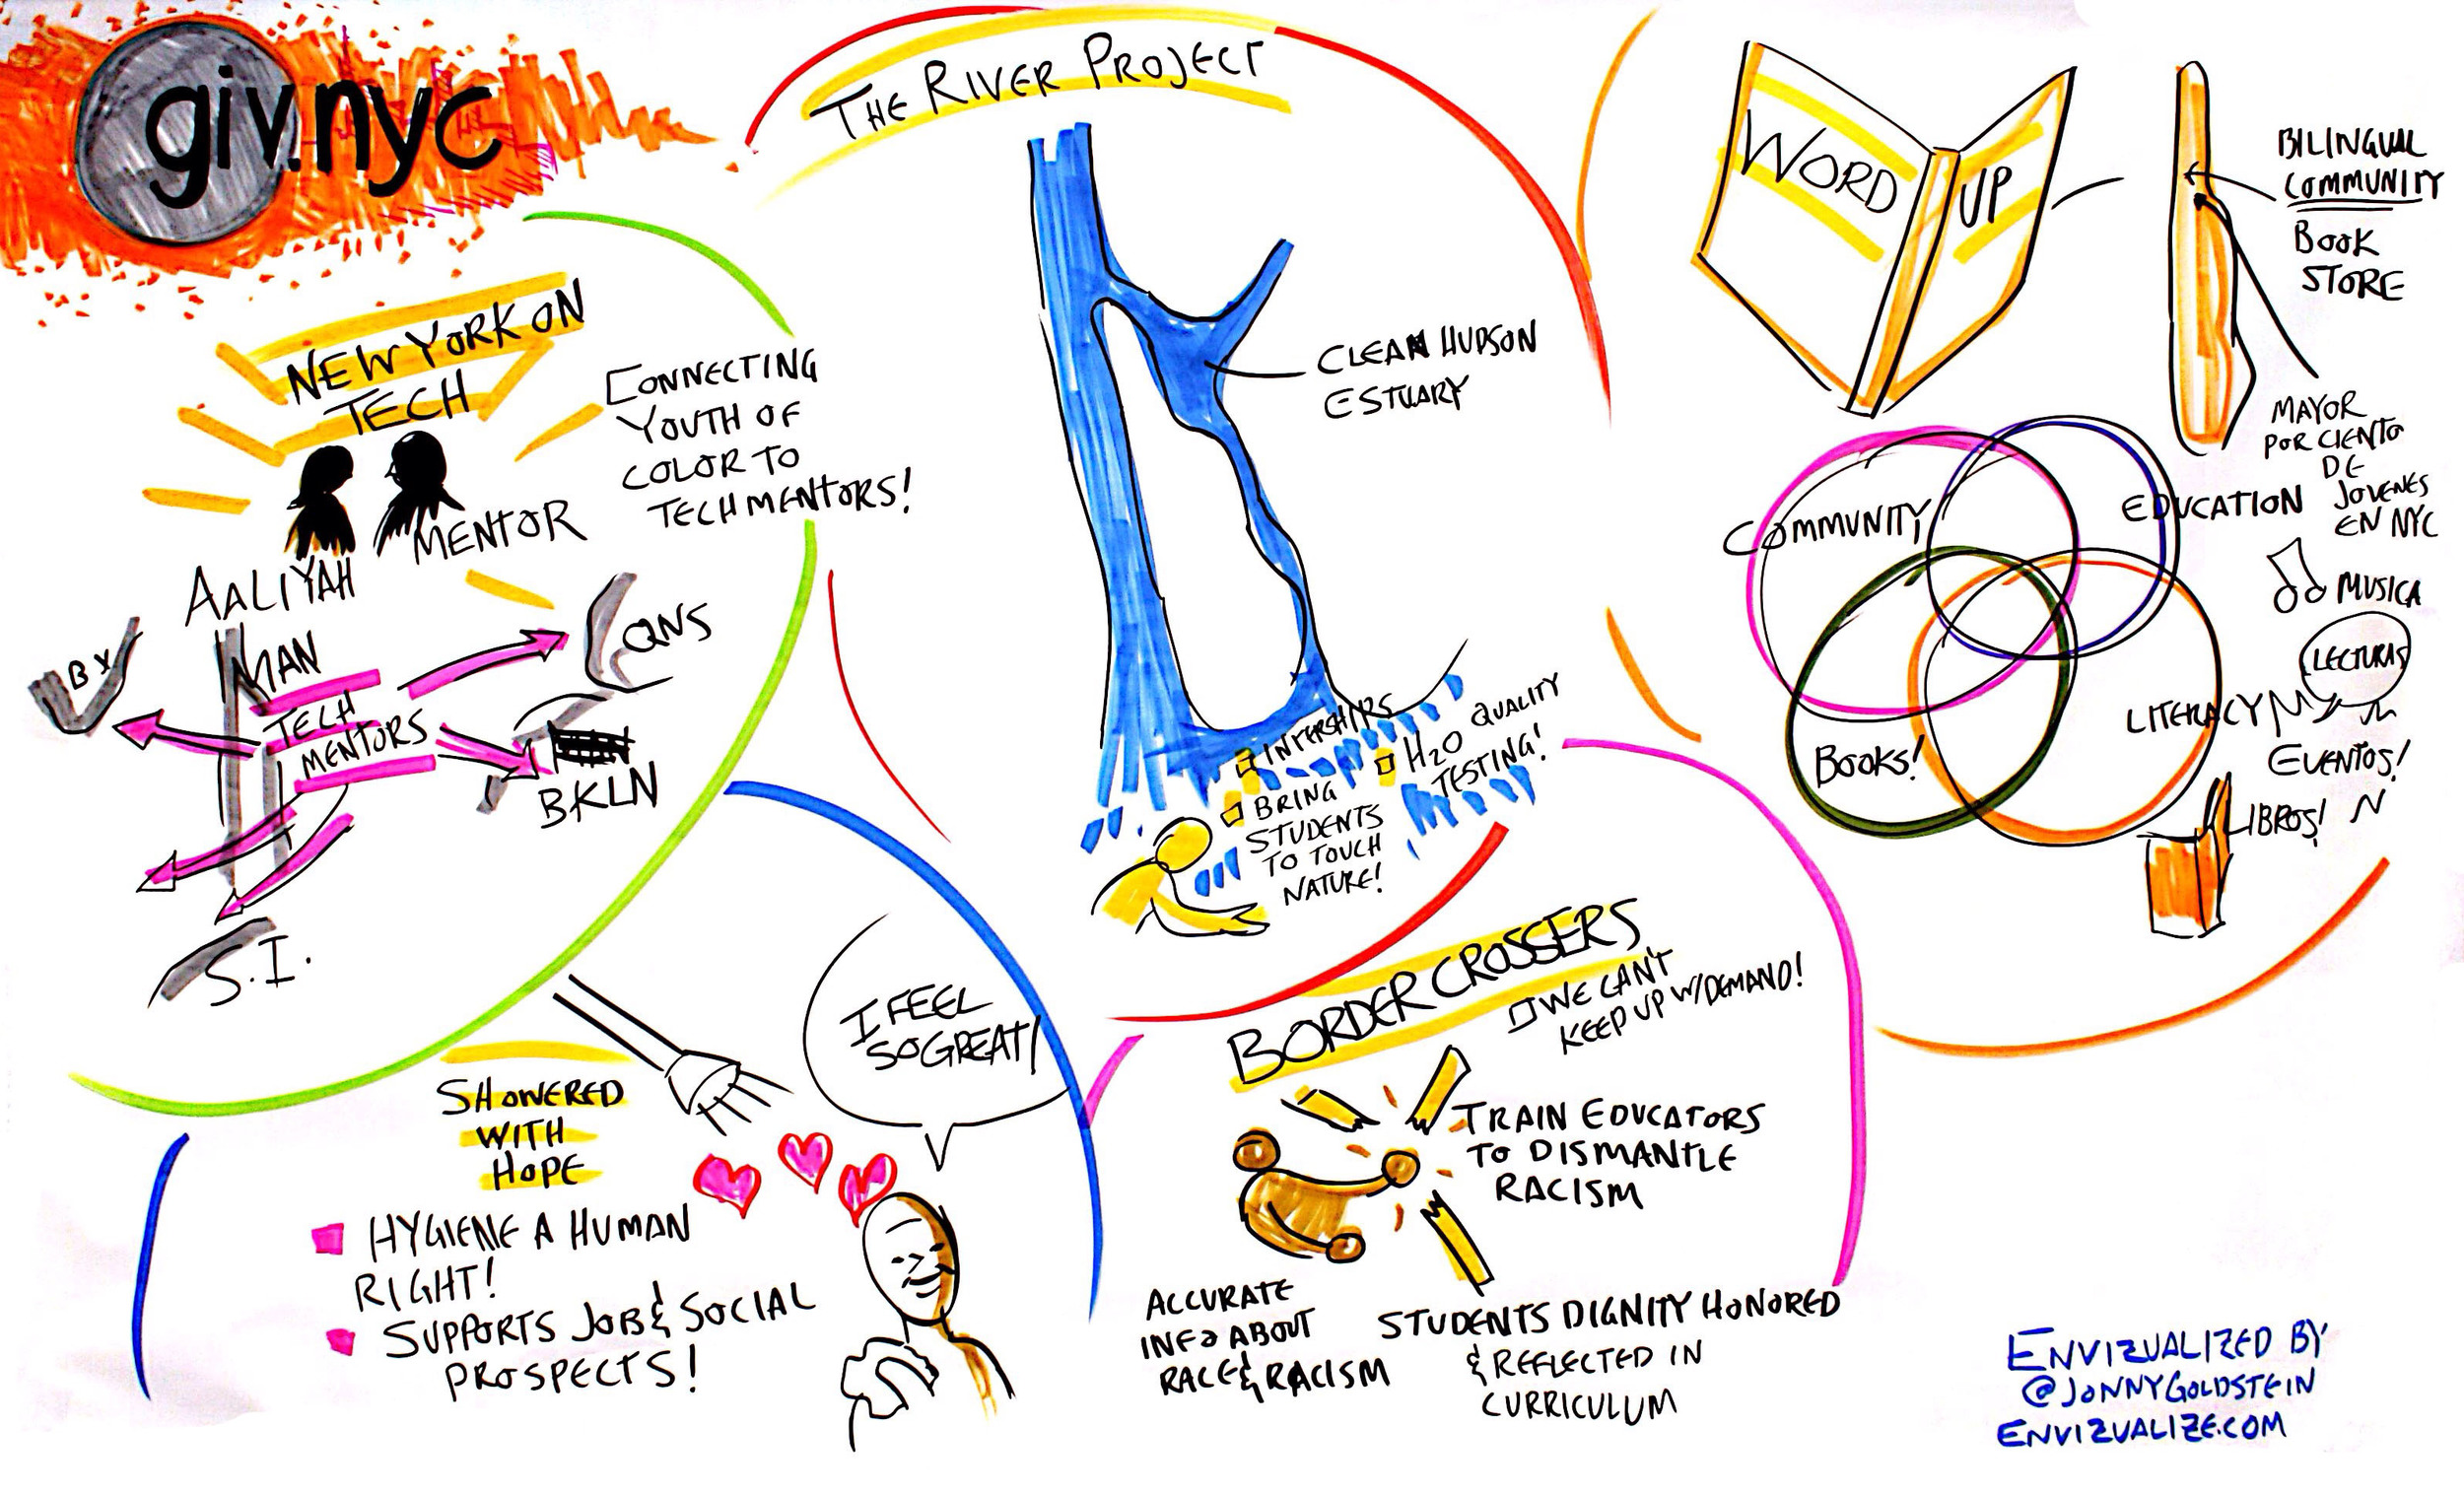 giv.nyc
NEW YORK ON
TECH
CONNECTING
YOUTH OF
COLOR TO
TECH MENTORS!
MENTOR
AALIYAH
BX
MAN
QNS
TECH
MENTORS
BKLN
S.I.
THE RIVER PROJECT
CLEAN HUDSON
ESTUARY
INTERSHIPS
H2O QUALITY
TESTING!
BRING
STUDENTS
TO TOUCH
NATURE!
WORD
UP
BILINGUAL
COMMUNITY
BOOK
STORE
MAYOR
POR CIENTO
DE
JOVENES
EN NYC
COMMUNITY
EDUCATION
BOOKS!
LITERACY
MUSICA
LECTURAS
EVENTOS!
LIBROS!
SHOWERED
WITH
HOPE
I FEEL
SO GREAT!
HYGIENE A HUMAN
RIGHT!
SUPPORTS JOB & SOCIAL
PROSPECTS!
BORDER CROSSERS
WE CAN'T
KEEP UP W/DEMAND!
TRAIN EDUCATORS
TO DISMANTLE
RACISM
ACCURATE
INFO ABOUT
RACE & RACISM
STUDENTS DIGNITY HONORED
& REFLECTED IN
CURRICULUM
ENVIZUALIZED BY
@JONNYGOLDSTEIN
ENVIZUALIZE.COM